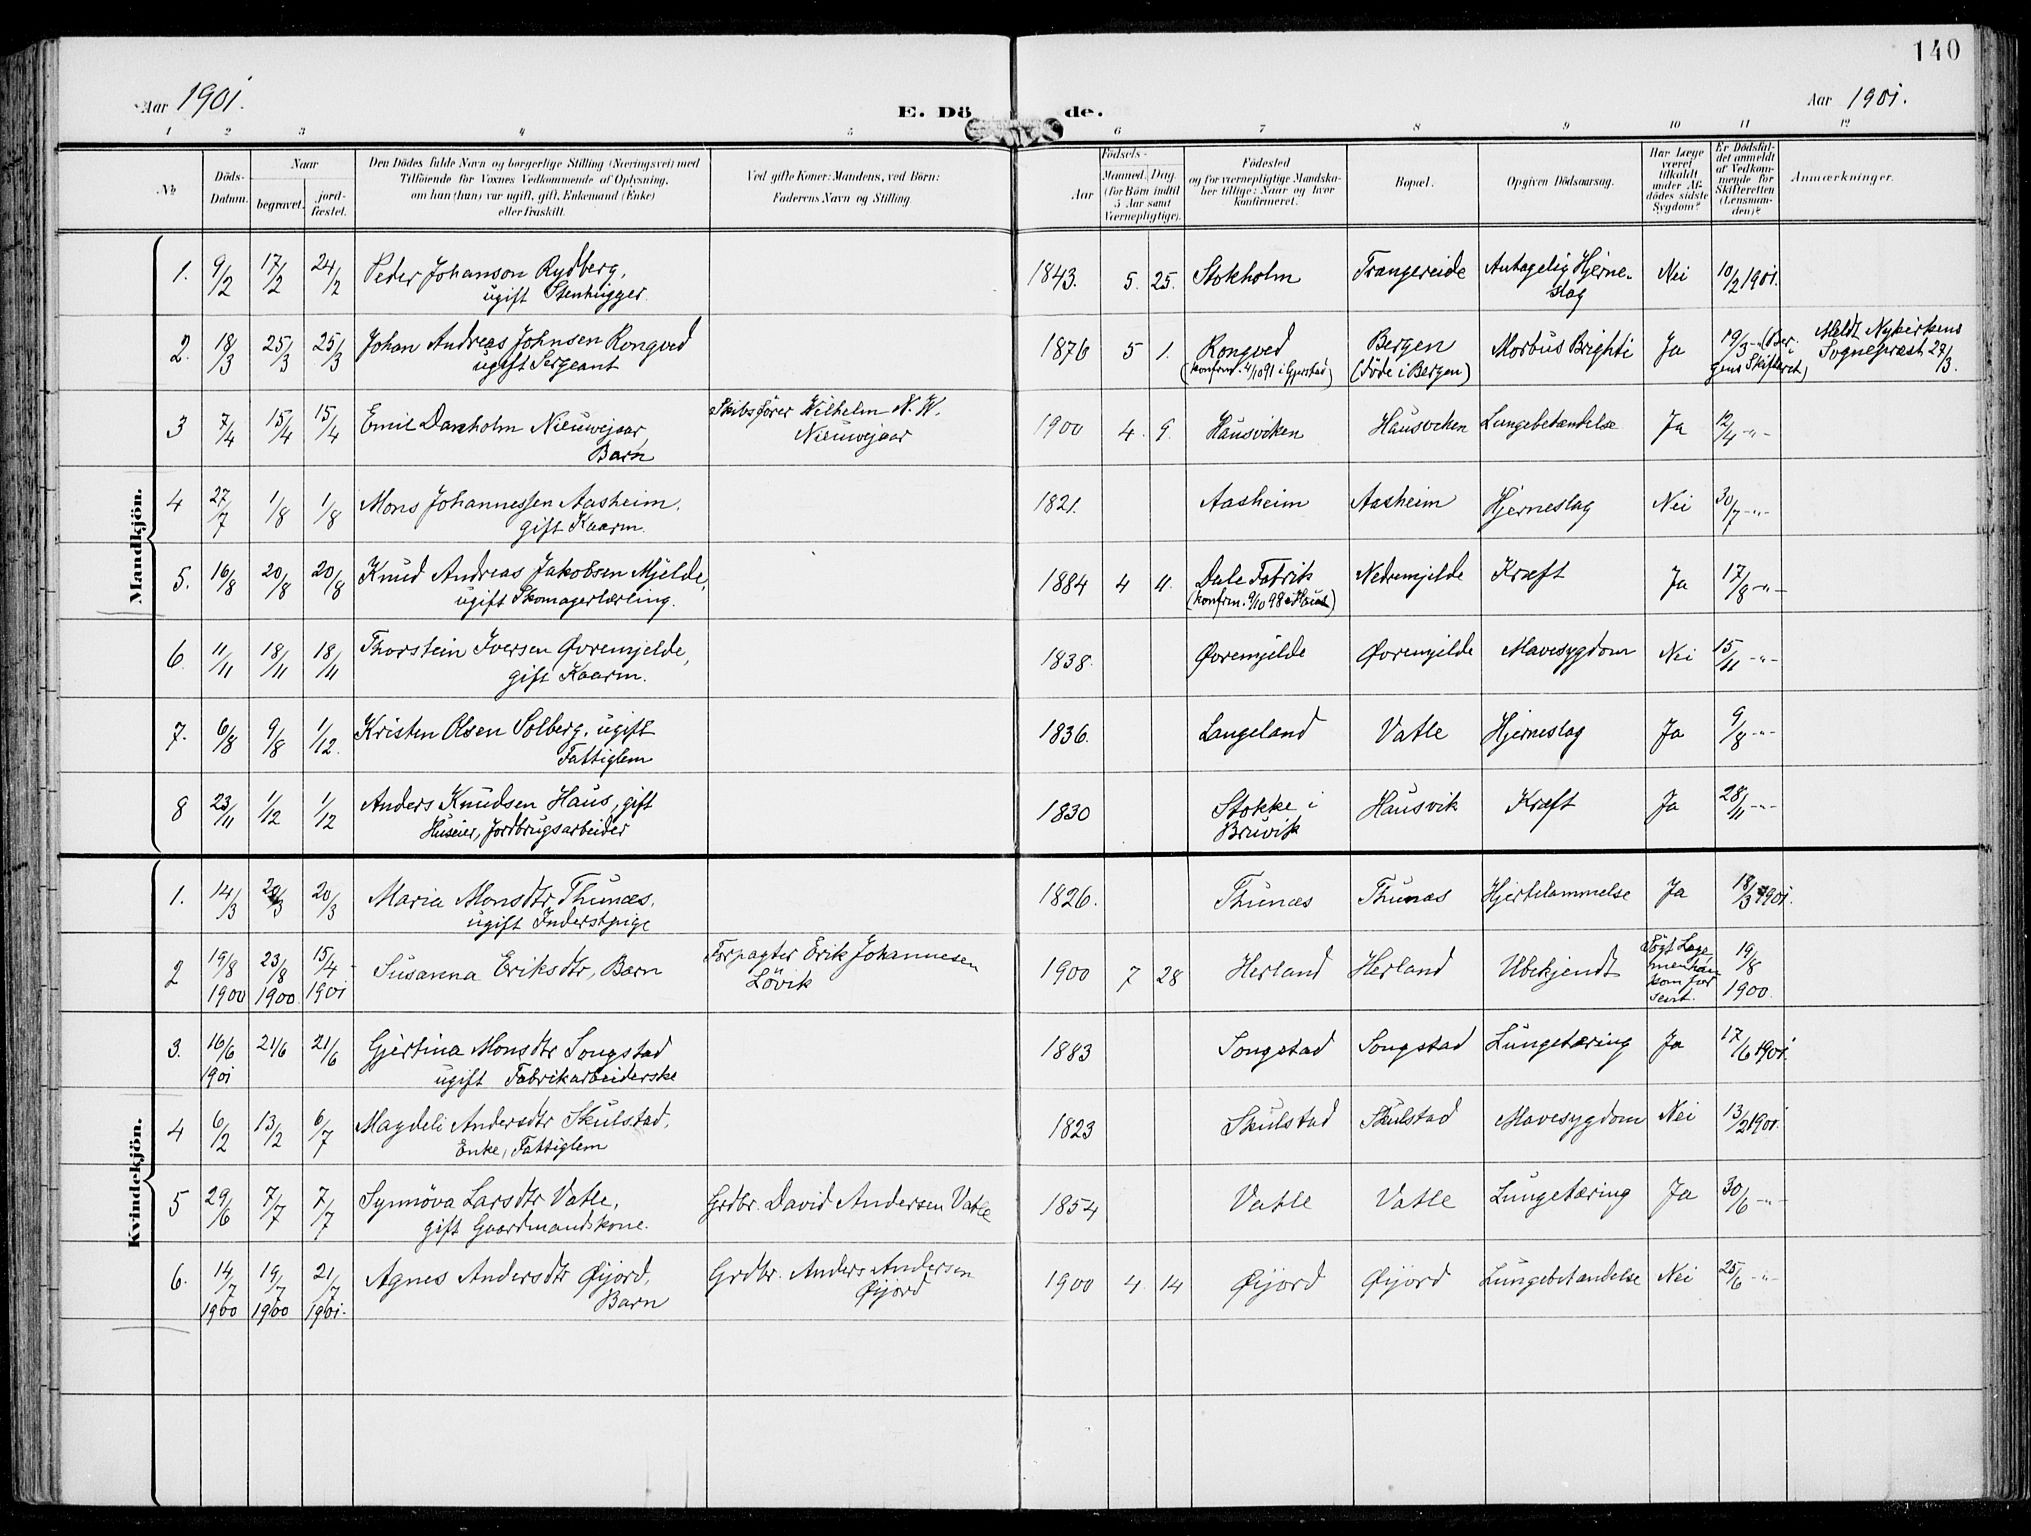 140
Aar 1901.
E. Dö de.
Aar 1901.
1 2 3 4 5 6 7 8 9 10 11 12
No
Döds-Datum.
Naar
begravet.
jord-fæstet.
Den Dödes fulde Navn og borgerlige Stilling (Næringsvei) med
Tilföiende for Voxnes Vedkommende af Oplysning,
om han (hun) var ugift, gift, Enkemand (Enke)
eller fraskilt.
Ved gifte Koner: Mandens, ved Börn:
Faderens Navn og Stilling.
Födsels-
Aar
Maaned. Dag.
(for Börn indtil
5 Aar samt
Værnepligtige).
Födested
og for værnepligtige Mandska-
ber tillige: Naar og hvor
konfirmeret.
Bopæl.
Opgiven Dödsaarsag.
Har Læge
været
tilkaldt
under Af-
dödes sidste
Sygdom?
Er Dödsfal-
det anmeldt
af Vedkom-
mende for
Skifteretten
(Lensman-
den)?
Anmærkninger.
Mandkjön.
1. 9/2 17/2 24/2 Peder Johanson Rydberg, 1843. 5. 25. Stokholm Trangereide Antagelig Hjerne- Nei 10/2 1901.
ugift Stenhugger. slag
2. 18/3 25/3 25/3 Johan Andreas Johnsen Rongved 1876 5 1. Rongved Bergen Morbus Brighti Ja 19/3 -"- (Ber- Meldt Nykirkens
ugift Sergeant (konfrm. 4/10 91 i Gjerstad) (döde i Bergen) gens Skifteret) Sogneprest 27/3.
3 7/4 15/4 15/4 Emil Danholm Nieuwejaar, Skibsförer Wilhelm N. W. 1900 4. 9. Hausviken Hausviken Lungebetændelse Ja 12/4 -"-
Barn Nieuwejaar
4 27/7 1/8 1/8 Mons Johannessen Aasheim, 1821. Aasheim Aasheim Hjerneslag Nei 30/7 -"-
gift Kaarm.
5. 16/8 20/8 20/8 Knud Andreas Jakobsen Mjelde, 1884 4 11. Dale Fabrik Nedremjelde Kræft Ja 17/8 -"-
ugift Skomagerlærling. (konfrm. 9/10 98 i Haus)
6. 11/11 18/11 18/11 Thorstein Iversen Øvremjelde, 1838. Øvremjelde Øvremjelde Mavesygdom Nei 15/11 -"-
gift Kaarm.
7. 6/8 9/8 1/12. Kristen Olsen Solberg, ugift 1836. Langeland Vatle Hjerneslag Ja 9/8 -"-
Fattiglem
8 23/11 1/12 1/12 Anders Knudsen Haus, gift 1830 Stokke i Hausvik Kræft Ja 28/11 -"-
Huseier, Jordbrugsarbeider Bruvik
Kvindekjön.
1. 14/3 20/3 20/3 Maria Monsdtr Thunæs, 1826. Thunæs Thunæs Hjertelammelse Ja 18/3 1901.
ugift Inderstpige
2 19/8 23/8 15/4 Susanna Eriksdtr, Barn Forpagter Erik Johannesen 1900 7 28 Herland Herland Ubekjendt Sögt Læge 19/8
1900 1900. 1901 Lövik men han kom for sent. 1900.
3. 16/6 21/6 21/6 Gjertina Monsdtr Songstad 1883 Songstad Songstad Lungetæring Ja 17/6 1901.
1901 ugift Fabrikarbeiderske
4 6/2 13/2 6/7 Magdeli Andersdtr Skulstad, 1823 Skulstad Skulstad Mavesygdom Nei 13/2 1901.
Enke, Fattiglem
5 29/6 7/7 7/7 Synnöva Larsdtr Vatle, Grdbr. David Andersen Vatle 1854 Vatle Vatle Lungetæring Ja 30/6 -"-
gift Gaardmandskone.
6. 14/7 19/7 21/7 Agnes Andersdtr Øijord, Grdbr. Anders Andersen 1900 4. 14 Øijord Øijord Lungebetændelse Nei 25/6 -"-
1900 1900 1901. Barn Øijord